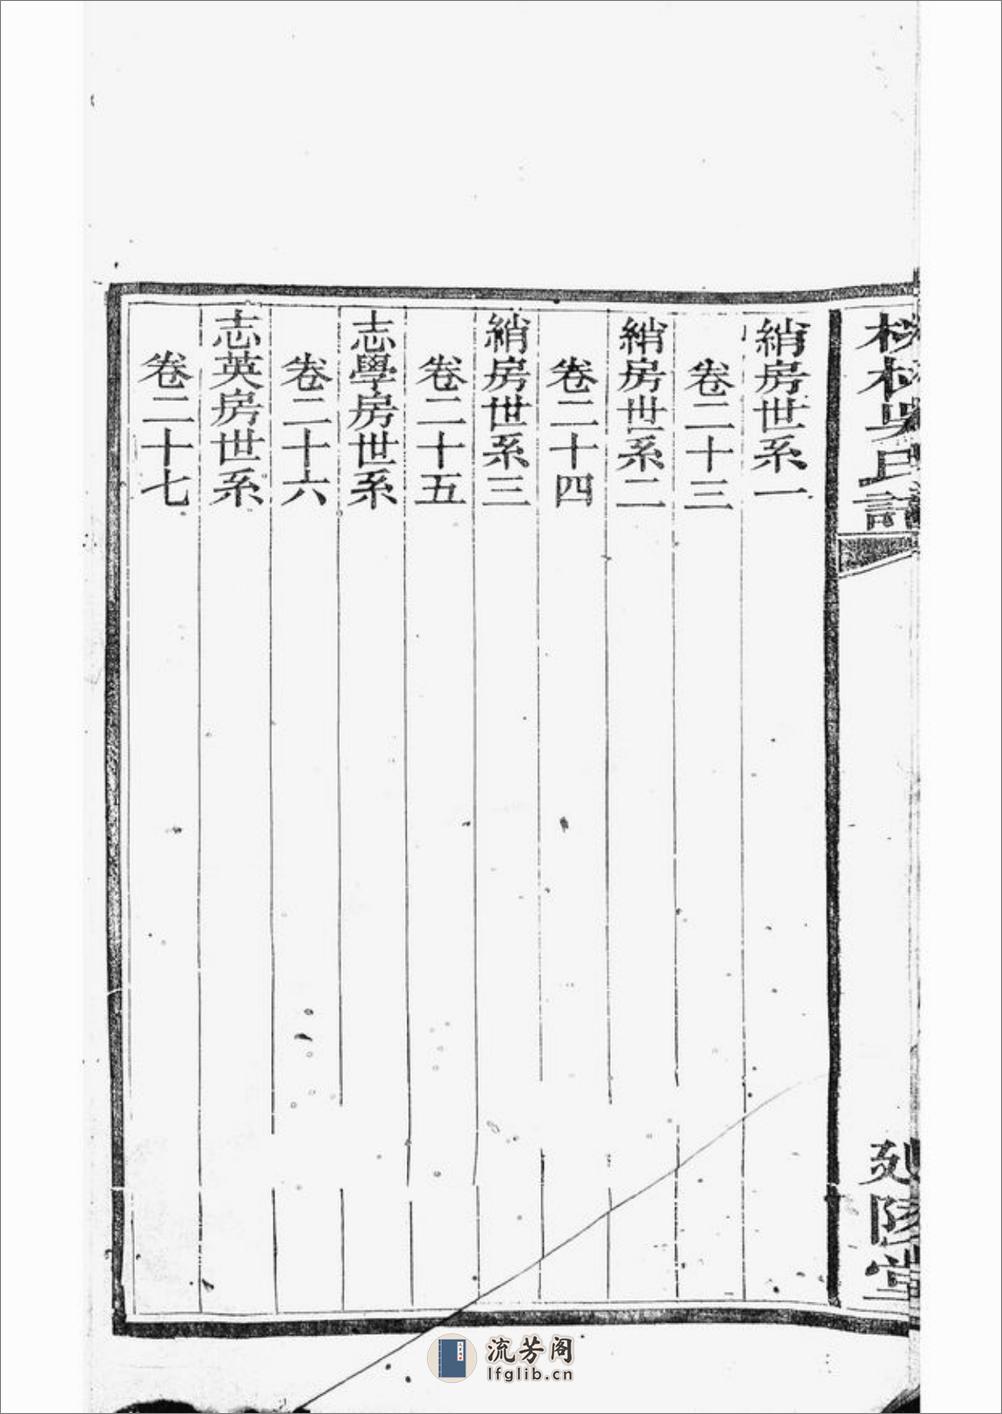 吳氏譜
綃房世系一
卷二十三
綃房世系二
卷二十四
綃房世系三
卷二十五
志學房世系
卷二十六
志英房世系
卷二十七
流芳阁
lfglib.cn